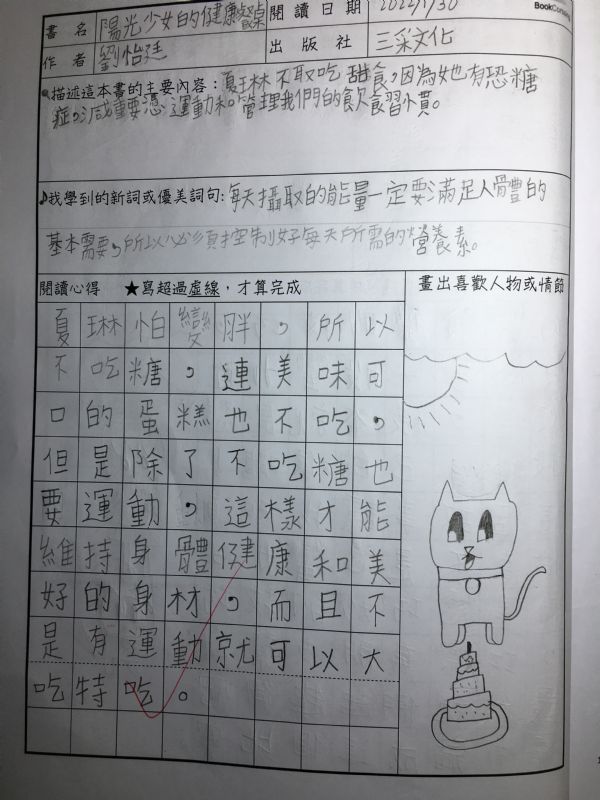 BookCon
書名 陽光少女的健康餐桌 閱讀日期 2022/1/30
作者 劉怡廷 出版社 三采文化
描述這本書的主要內容：夏琳不敢吃甜食，因為她有恐糖
症。減重要憑運動和管理我們的飲食習慣。
♪我學到的新詞或優美詞句：每天攝取的能量一定要滿足人體的
基本需要，所以必須控制好每天所需的營養素。
閱讀心得 ★寫超過虛線，才算完成 畫出喜歡人物或情節
夏琳怕變胖，所以
不吃糖，連美味可
口的蛋糕也不吃，
但是除了不吃糖也
要運動，這樣才能
維持身體健康和美
好的身材，而且不
是有運動就可以大
吃特吃。